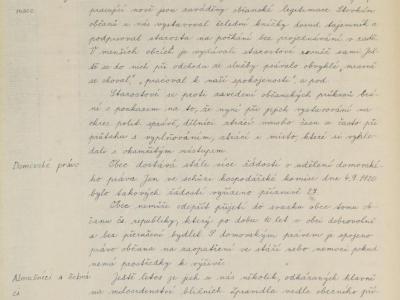 mace
pracující nově jsou zaváděny občanské legitimace. Strohým
občanů u nás vystavoval čelední knížky dosud tajemník a
podpisoval starosta na počkání bez projednávání v radě.
V menších obcích je vydávali starostové rovněž sami. Ješ-
tě se do nich při odchodu ze služby psávalo obvyklé „mravně
se choval", „pracoval k naší spokojenosti", a pod.
Starostové se proti zavedení občanských průkazů brá-
ní s poukazem na to, že nyní při jejich vystavování na
okres. polit. správě, dělníci ztrácí mnoho času a často při
průtahu s vyplňováním, ztrácí i místo, které si vyhle-
dali s okamžitým nástupem.
Domovské právo
Obec dostává stále více žádostí o udělení domovské-
ho práva. Jen ve schůzi hospodářské komise dne 4.9.1920
bylo takových žádostí vyřízeno příznivě 29.
Obec nemůže odepříti přijetí do svazku obce tomu ob-
čanu čs. republiky, který po dobu 10 let v obci dobrovolně
a bez přerušení bydlel. S domovským právem je spojeno
právo občana na zaopatření ve stáří nebo nemoci pokud
nemá prostředky k výživě.
Almužníci a žebrá
ci
Ještě letos je jich u nás několik, odkázaných hlavně
na milosrdenství bližních. Zpravidla vedle obecního pří-